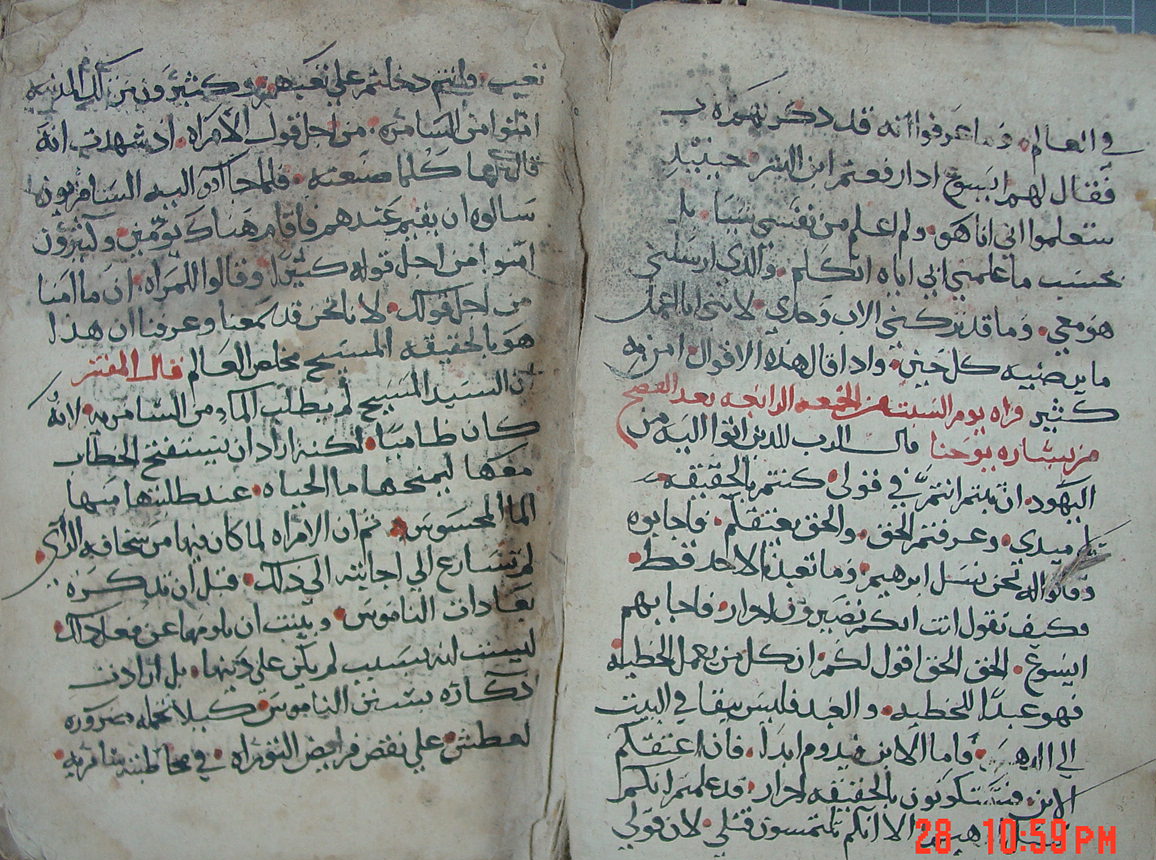 في العالم. وما عرفوا انه قد ذكر لهم
فقال لهم ايسوع اذا رفعتم ابن البشر. حينيذ
ستعلموا اني انا هو. ولم اعلم من نفسي شيا. بل
بحسب ما علمني ابي اياه اتكلم. والذي ارسلني
هو معي. وما قد تركني الاب وحدي. لانني انا اعمل
ما يرضيه كل حين. واذ قال هذه الاقوال. امن به
كثير قراه يوم السبت من الجمعه الرابعه بعد الفصح
من بشاره يوحنا قال الرب للذين اتوا اليه من
اليهود. ان ثبتم انتم في قولي. كنتم بالحقيقه
تلاميدي. وعرفتم الحق. والحق يعتقكم. فاجابوه
وقالوا له نحن نسل ابرهيم. وما تعبدنا لاحد قط.
وكيف تقول انت انكم تصيرون احرار. فاجابهم
ايسوع. الحق الحق اقول لكم. ان كل من يعمل الخطيه
فهو عبدا للخطيه. والعبد فليس يبقا في البيت
الي الدهر. فاما الابن فيدوم ابدا. فان اعتقكم
الابن فستكونون بالحقيقه احرار. قد علمت انكم
نسل ابرهيم الا انكم تلتمسون قتلي. لان قولي
28 10:59 PM
تعب. وانتم دخلتم علي تعبهم. وكثيرون من تلك المدينه
امنوا من السامره. من اجل قول الامراه. اد شهدت انه
قال لها كلما صنعته. فلما جاآوا اليه السامريون
سالوه ان يقيم عندهم فاقام هناك يومين. وكثيرون
امنوا من اجل قوله كثيرا. وقالوا للمراه. ان ما امنا
من اجل قولك. لاننا نحن قد سمعنا وعرفنا ان هدا
هو بالحقيقه المسيح مخلص العالم قال المفسر
ان السيد المسيح لم يطلب الماء من السامريه. لانه
كان ظاميا. لكنه اراد ان يستفتح الخطاب
معها ليمنحها ما الحياه. عند طلبتها منها
الما المحسوس. ثم ان الامراه لما كان فيها من سخافه الراي.
لم تسارع الي اجابته الي ذلك. قبل ان تدكره
بعادات الناموس. وبينت ان يلومها عن فعل ذلك
ليس لسبب لم يكن علي دينها. بل ارادت
ادكاره بسنن الناموس. كيلا تحمله ضروره
العطش. علي نقض فرايض التوراه. في مخاطبته سامريه.